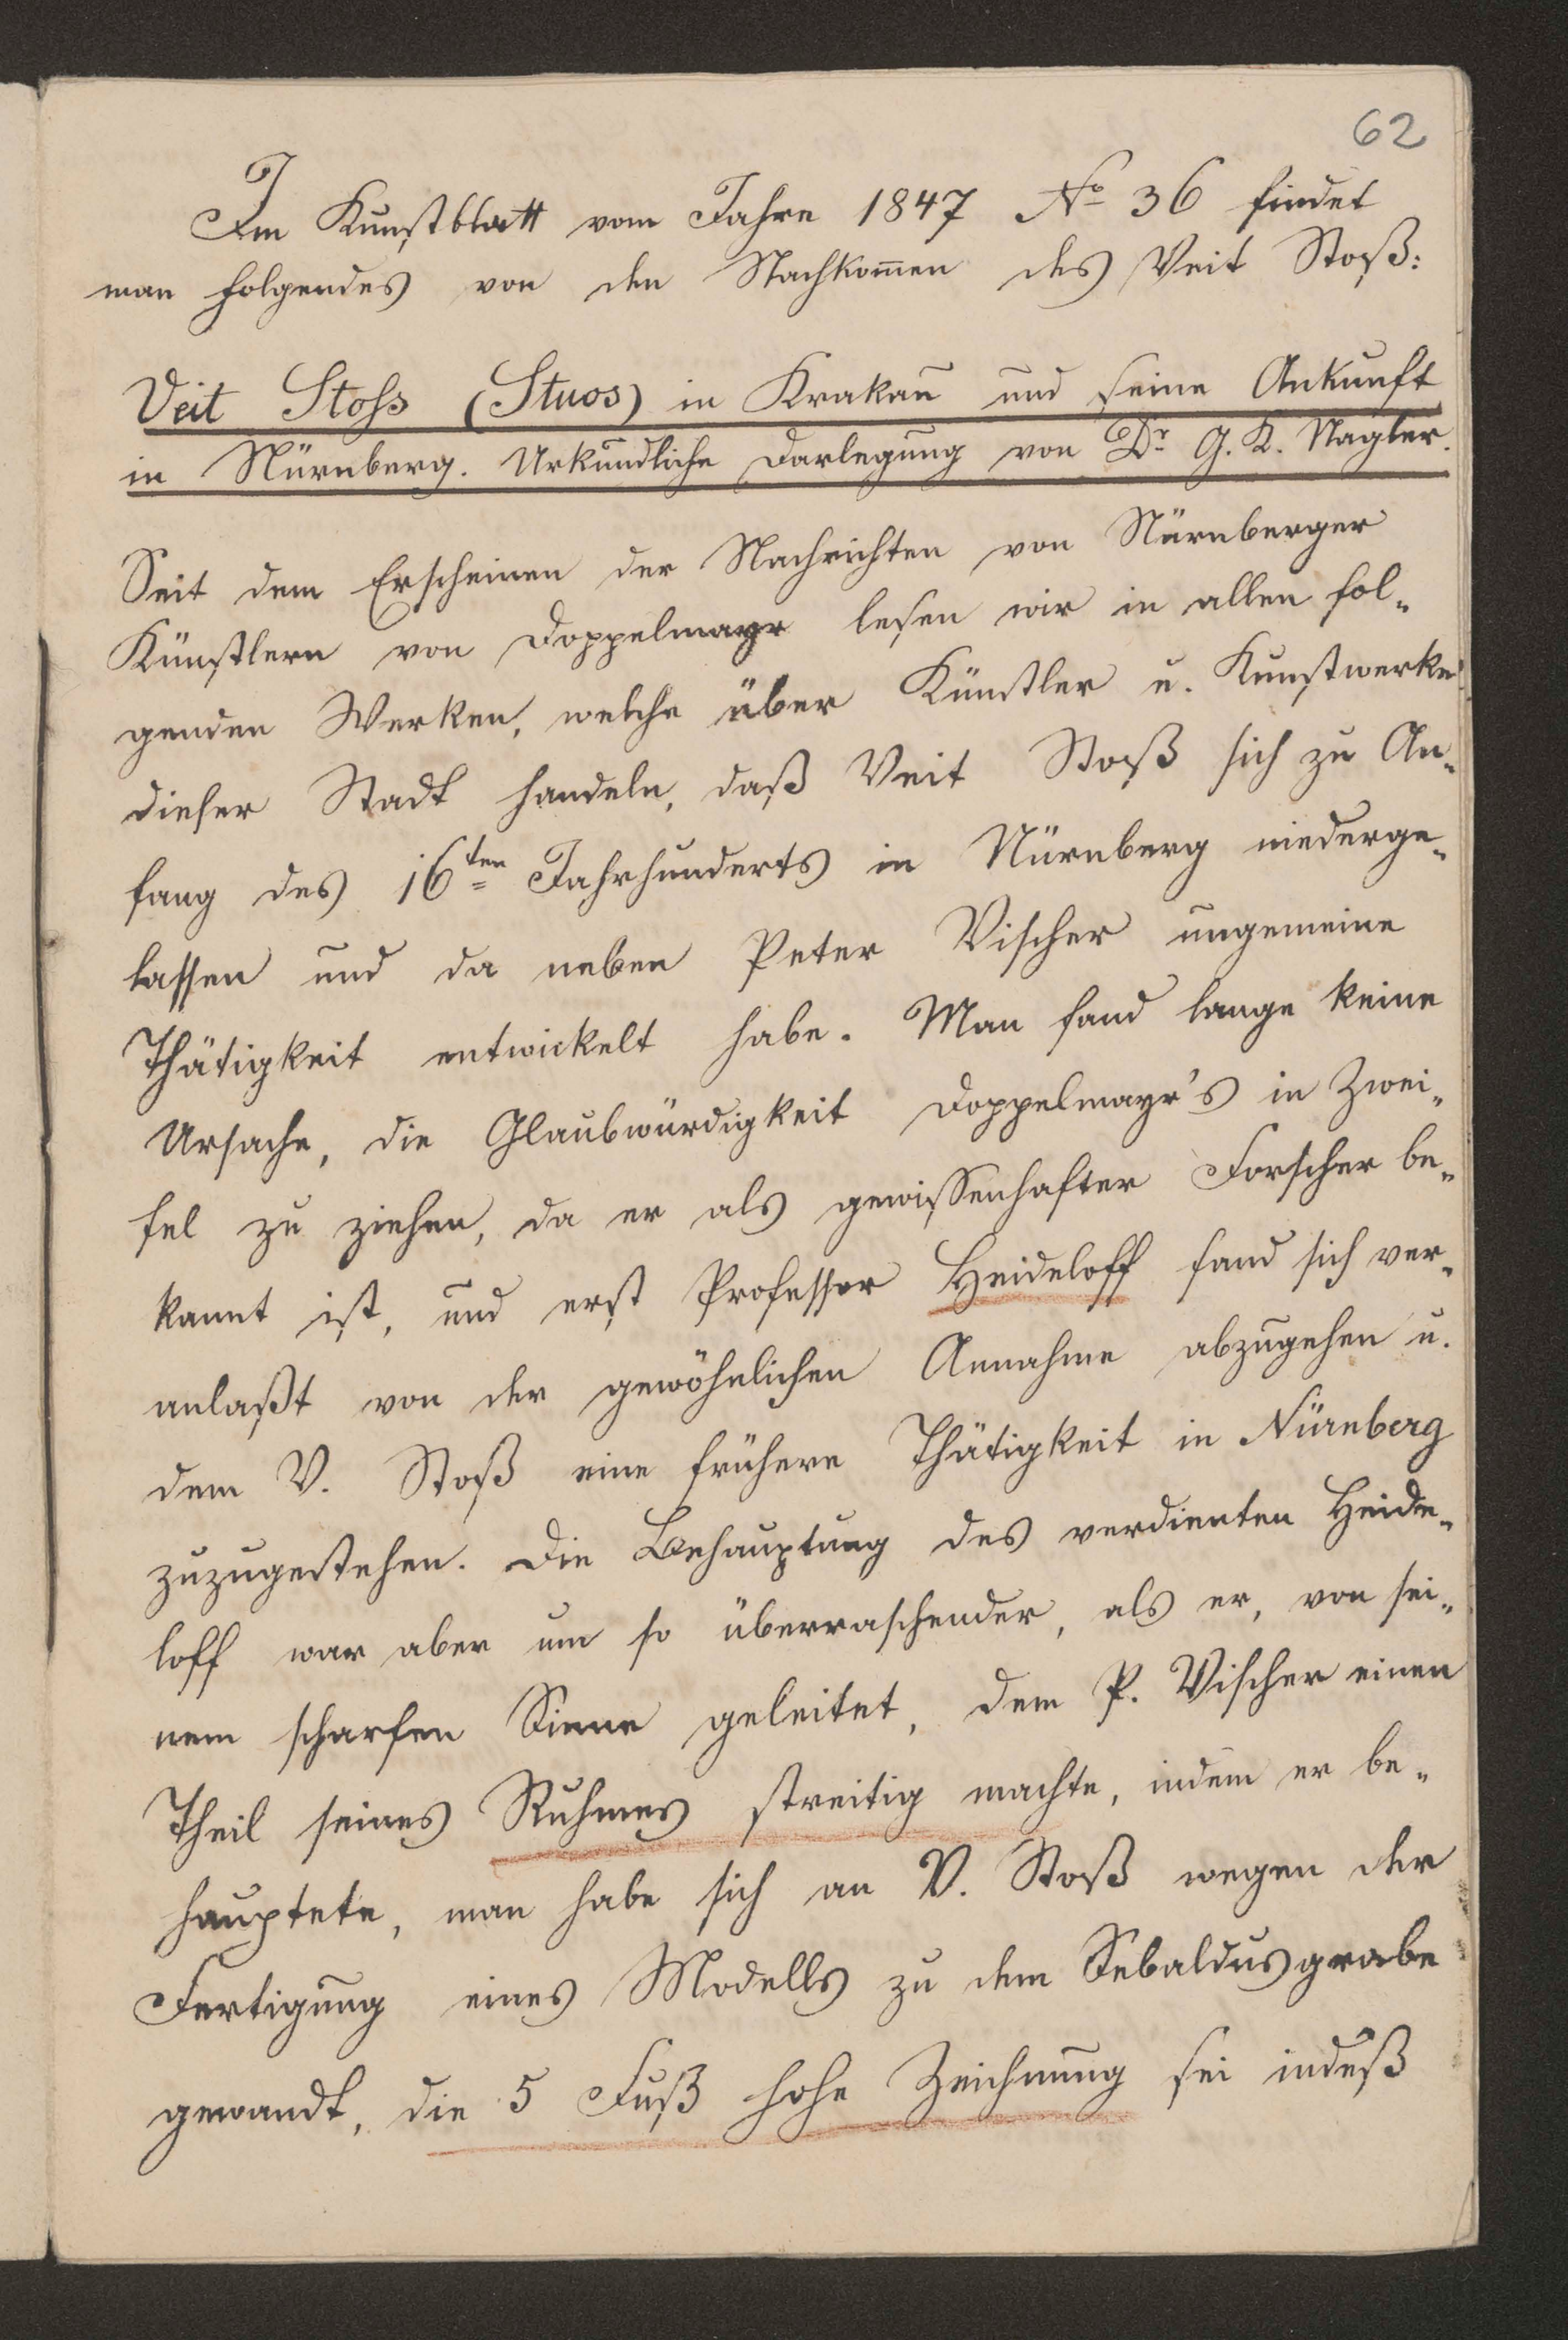 62
Im Kunstblatt vom Jahre 1847 No 36 findet
man folgendes von den Nachkom̅en des Veit Stoß:
Veit Stoss (Stuos) in Krakau und seine Ankunft
in Nürnberg. Urkundliche Darlegung von Dr G. K. Nagler.
Seit dem Erscheinen der Nachrichten von Nürnberger
Künstlern von Doppelmayr lesen wir in allen fol-
genden Werken, welche über Künstler u. Kunstwerke
dieser Stadt handeln, daß Veit Stoß sich zu An-
fang des 16ten Jahrhunderts in Nürnberg niederge-
lassen und da neben Peter Vischer ungemeine
Thätigkeit entwickelt habe. Man fand lange keine
Ursache, die Glaubwürdigkeit Doppelmayr's in Zwei-
fel zu ziehen, da er als gewissenhafter Forscher be-
kannt ist, und erst Professor Heideloff fand sich ver-
anlaßt von der gewöhnlichen Annahme abzugehen u.
dem V. Stoß eine frühere Thätigkeit in Nürnberg
zuzugestehen. Die Behauptung des verdienten Heide-
loff war aber um so überraschender, als er, von sei-
nem scharfen Sinne geleitet, dem P. Vischer einen
Theil seines Ruhmes streitig machte, indem er be-
hauptete, man habe sich an V. Stoß wegen der
Fertigung eines Modells zu dem Sebaldusgrabe
gewandt, die 5 Fuß hohe Zeichnung sei indeß